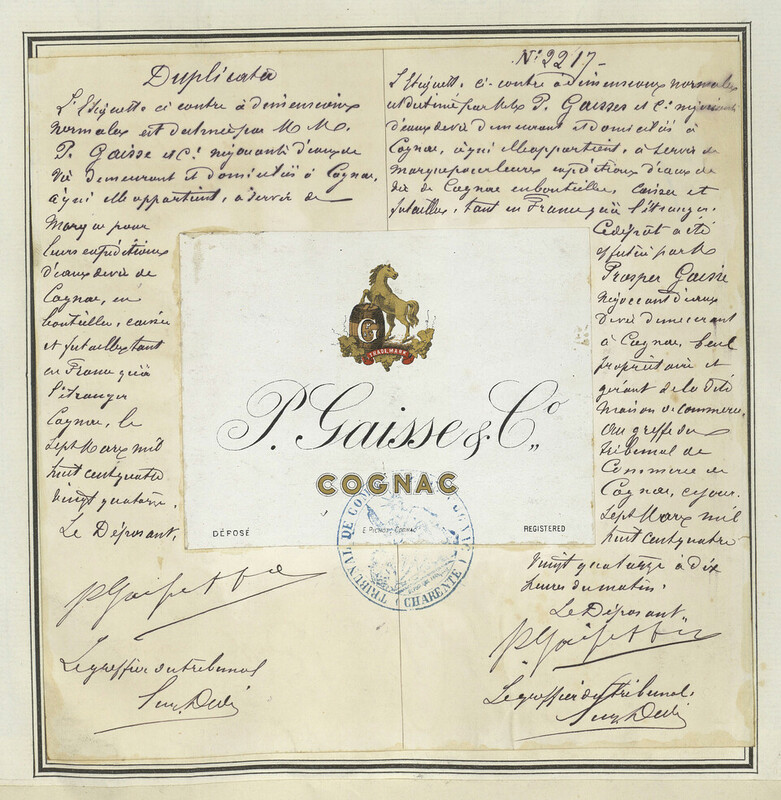 Duplicata
L'Etiquette ci contre à dimensions
normales est destinée par M M.
P. Gaisse et Cie négociants d'eaux de
vie demeurant et domiciliés à Cognac,
à qui elle appartient, à servir de
Marque pour
leurs expéditions
d'eaux de vie de
Cognac, en
bouteilles, caisses
et futailles tant
en France qu'à
l'étranger
Cognac, le
Sept Mars mil
huit cent quatre
vingt quatorze.
Le Déposant,
P Gaisse & Cie
Le greffier du tribunal
No 2217
L'Etiquette ci-contre à dimensions normales
est destinée par MM. P. Gaisse et Cie négociants
d'eaux de vie demeurant et domiciliés à
Cognac, à qui elle appartient, à servir de
marque pour leurs expéditions d'eaux de
vie de Cognac en bouteilles, caisses et
futailles, tant en France qu'à l'étranger.
Ce dépôt a été
effectué par M
Prosper Gaisse
négociant d'eaux
de vie demeurant
à Cognac, seul
propriétaire et
gérant de la dite
maison de commerce,
Au greffe du
tribunal de
Commerce de
Cognac, ce jour.
Sept Mars mil
huit cent quatre
vingt quatorze à dix
heures du matin.
Le Déposant
P Gaisse & Cie
Le greffier du tribunal.
G
TRADE MARK
P. Gaisse & Co
COGNAC
DÉPOSÉ
REGISTERED
TRIBUNAL DE COMMERCE COGNAC
CHARENTE